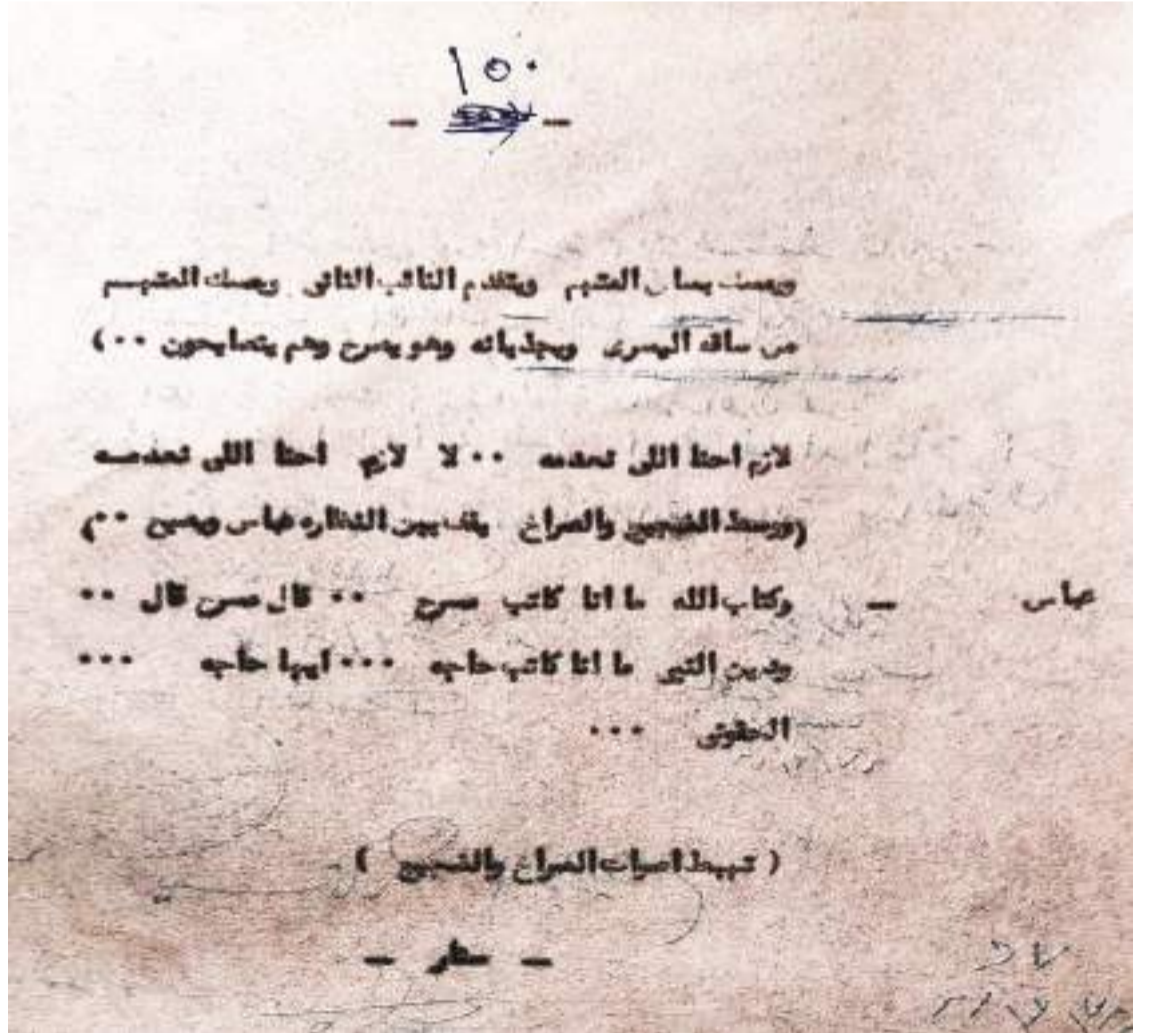 ١٥٠
ويمسك بساق المتهم ويتقدم النائب الثانى ويمسك المتهم
من ساقه اليسرى ويجذبانه وهو يصرخ وهم يتصايحون ٠٠)
لازم احنا اللى نعدمه ٠٠ لا لازم احنا اللى نعدمه
(ووسط الضجيج والصراخ يقف بين النظاره عباس ويصيح ٠٠)
عباس — وكتاب الله ما انا كاتب مسرح ٠٠ قال مسرح قال ٠٠
ودين النبى ما انا كاتب حاجه ٠٠٠ ايها حاجه ٠٠٠
الحقونى ٠٠٠
( تهبط اصوات الصراخ والضجيج )
— ستار —